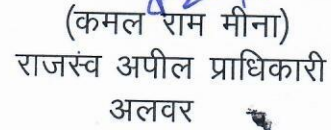 (कमल राम मीना)
राजस्व अपील प्राधिकारी
अलवर